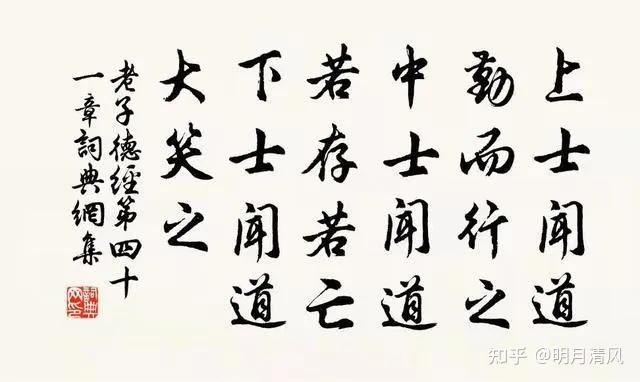 上士闻道
勤而行之
中士闻道
若存若亡
下士闻道
大笑之
老子德经第四十
一章词典网集
詞典
网印
知乎 @明月清风